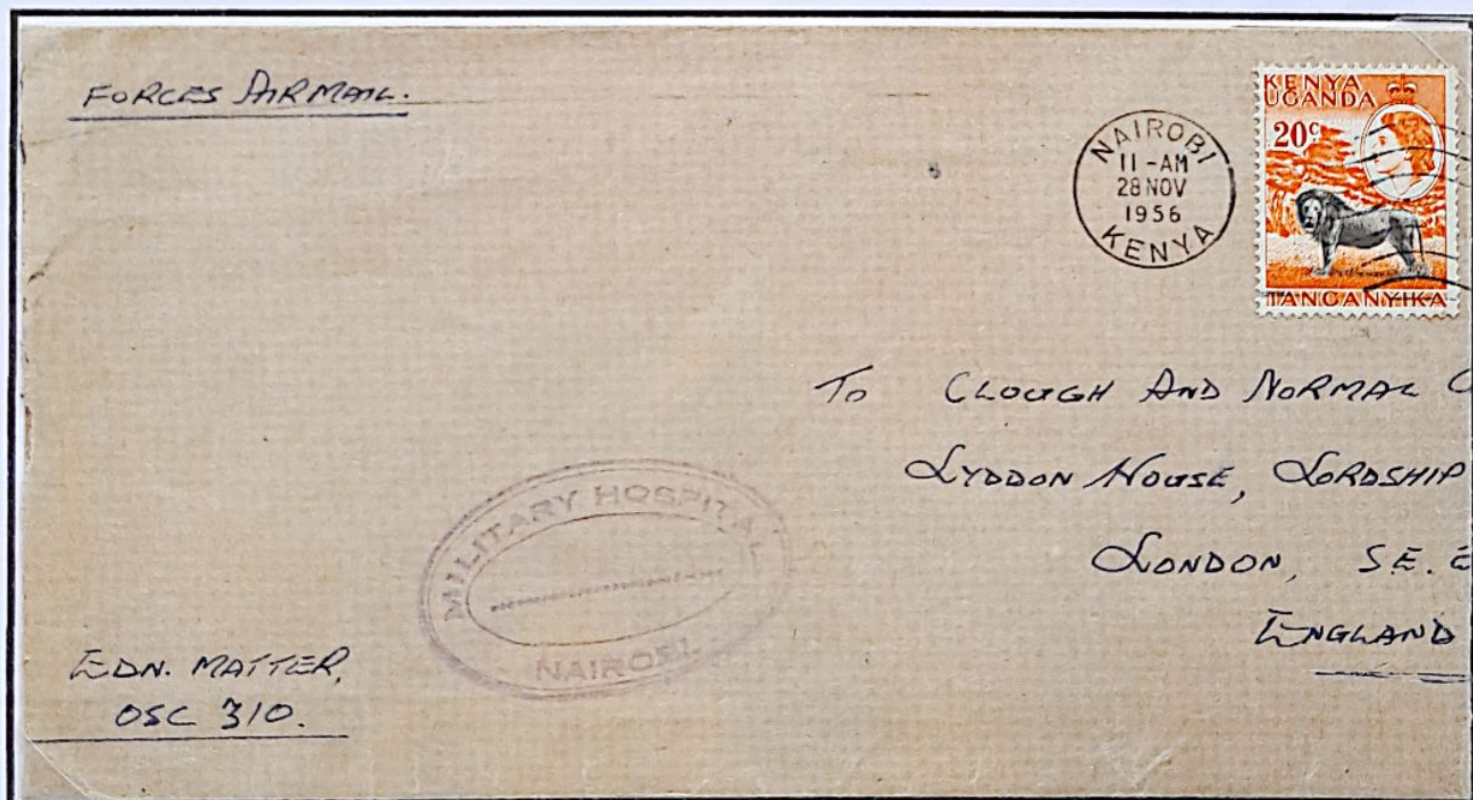 FORCES AIRMAIL.
NAIROBI
11-AM
28 NOV
1956
KENYA
KENYA
UGANDA
20c
TANGANYIKA
To CLOUGH AND NORMAL
LYDDON HOUSE, LORDSHIP
LONDON, S.E.
ENGLAND
MILITARY HOSPITAL
NAIROBI
EDN. MATTER,
OSC 310.